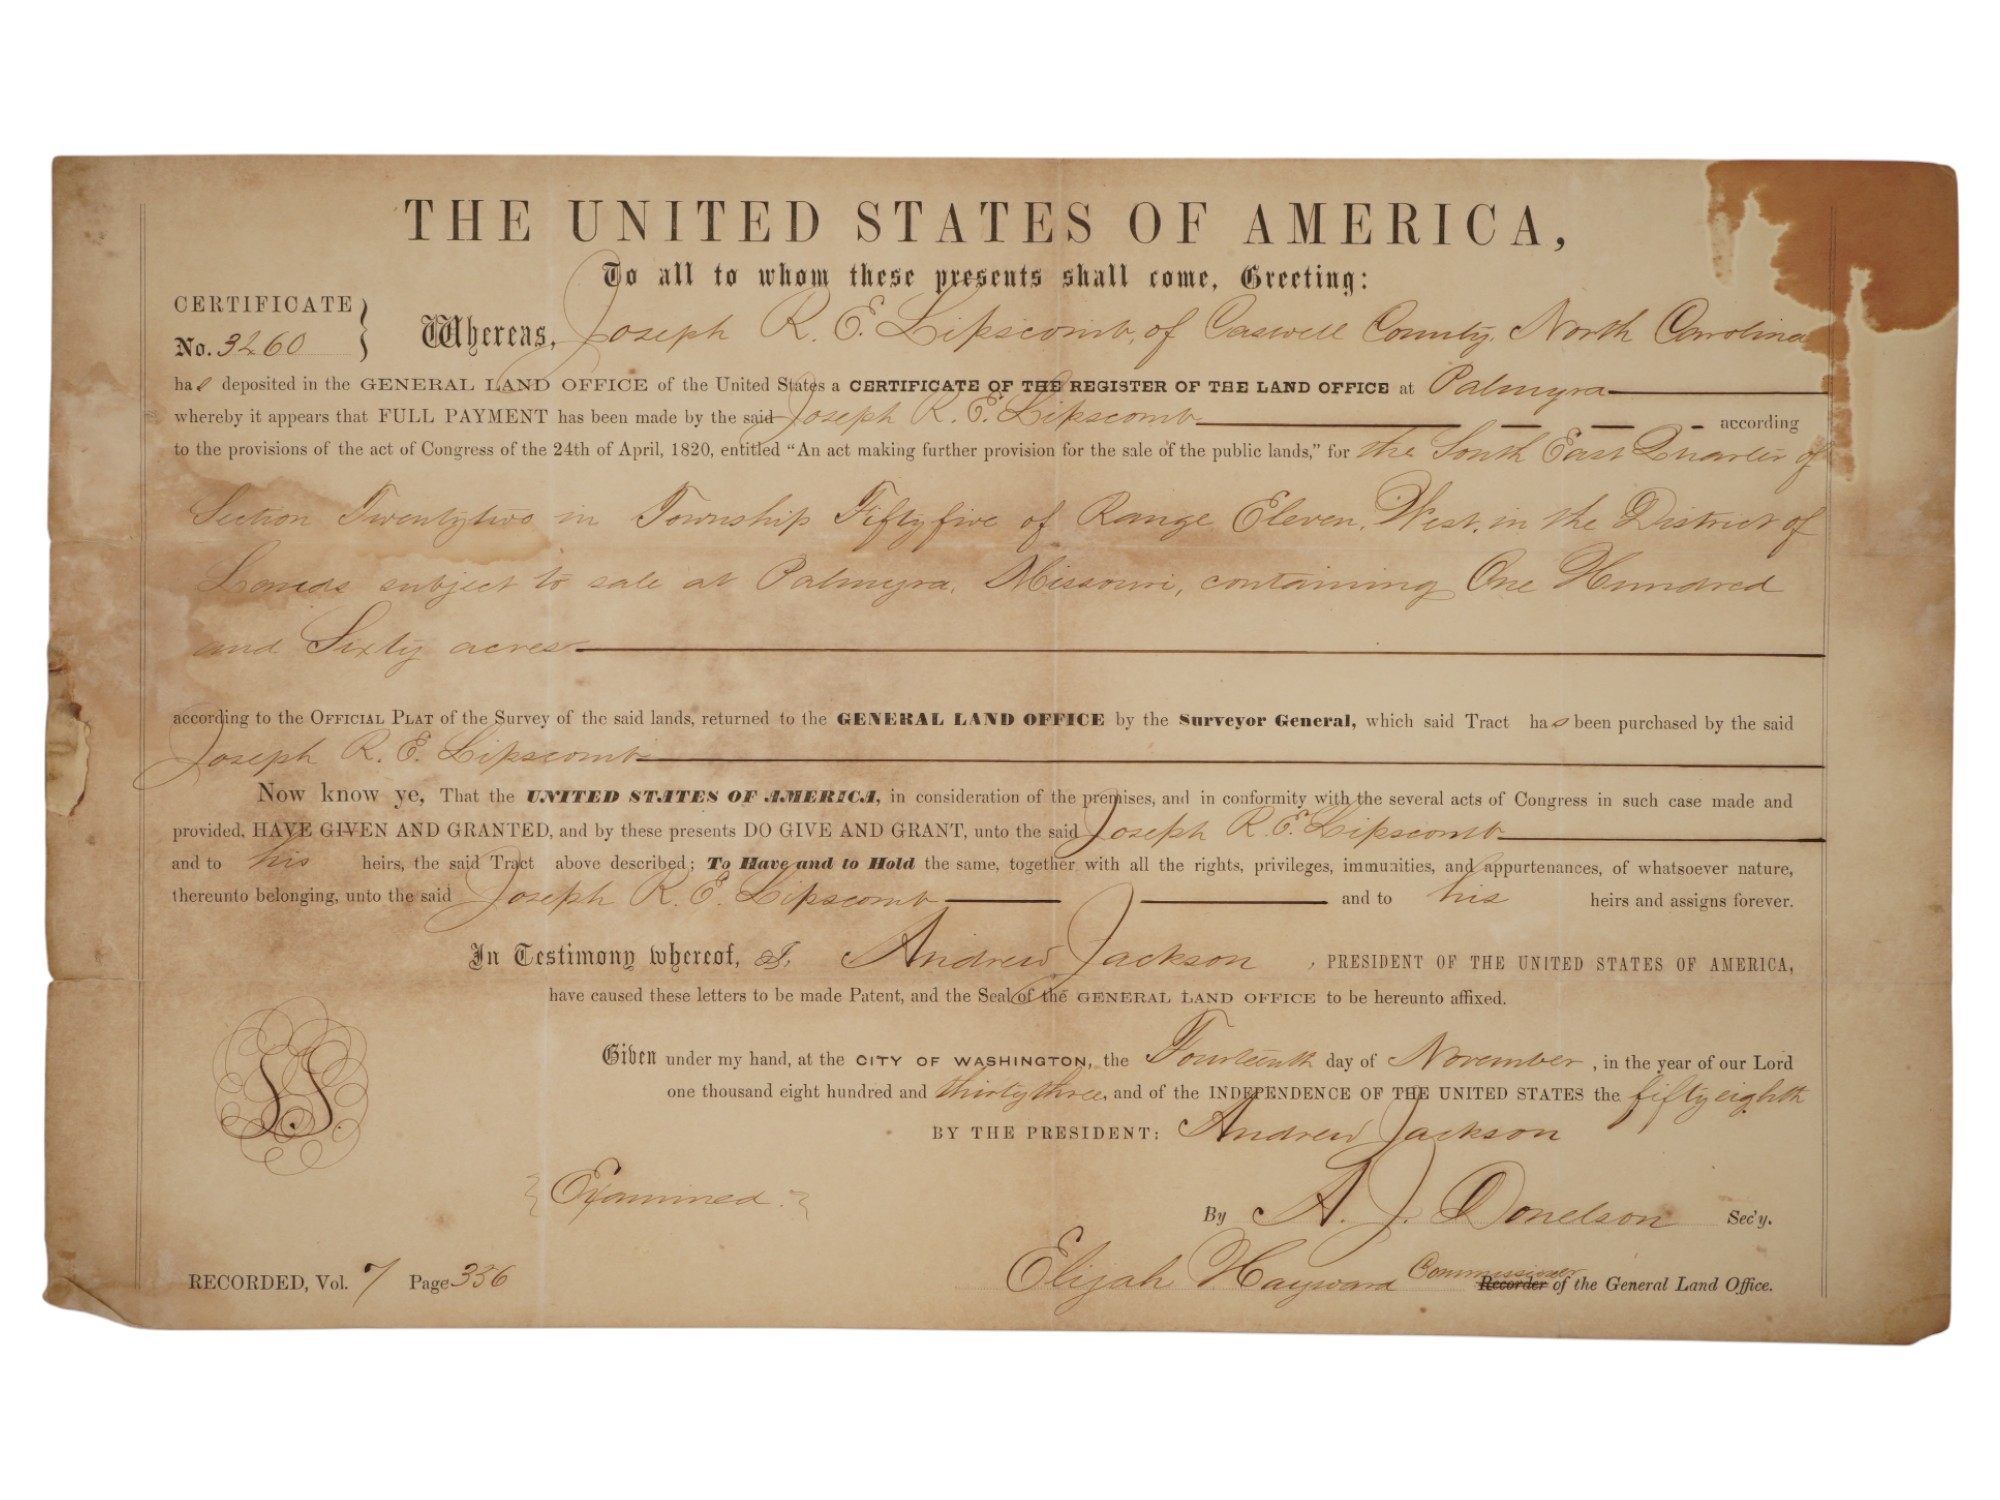 THE UNITED STATES OF AMERICA,
To all to whom these presents shall come, Greeting:
CERTIFICATE
No. 3260
Whereas, Joseph R. E. Lipscomb, of Caswell County, North Carolina
has deposited in the GENERAL LAND OFFICE of the United States a CERTIFICATE OF THE REGISTER OF THE LAND OFFICE at Palmyra
whereby it appears that FULL PAYMENT has been made by the said Joseph R. E. Lipscomb according
to the provisions of the act of Congress of the 24th of April, 1820, entitled "An act making further provision for the sale of the public lands," for the South East Quarter of
Section Twentytwo in Township Fiftyfive of Range Eleven, West, in the District of
Lands subject to sale at Palmyra, Missouri, containing One Hundred
and Sixty acres
according to the OFFICIAL PLAT of the Survey of the said lands, returned to the GENERAL LAND OFFICE by the Surveyor General, which said Tract has been purchased by the said
Joseph R. E. Lipscomb
Now know ye, That the UNITED STATES OF AMERICA, in consideration of the premises, and in conformity with the several acts of Congress in such case made and
provided, HAVE GIVEN AND GRANTED, and by these presents DO GIVE AND GRANT, unto the said Joseph R. E. Lipscomb
and to his heirs, the said Tract above described; To Have and to Hold the same, together with all the rights, privileges, immunities, and appurtenances, of whatsoever nature,
thereunto belonging, unto the said Joseph R. E. Lipscomb and to his heirs and assigns forever.
In Testimony whereof, I, Andrew Jackson, PRESIDENT OF THE UNITED STATES OF AMERICA,
have caused these letters to be made Patent, and the Seal of the GENERAL LAND OFFICE to be hereunto affixed.
Given under my hand, at the CITY OF WASHINGTON, the Fourteenth day of November, in the year of our Lord
one thousand eight hundred and thirtythree, and of the INDEPENDENCE OF THE UNITED STATES the fiftyeighth
BY THE PRESIDENT: Andrew Jackson
L.S.
Examined.
By A. J. Donelson Sec'y.
RECORDED, Vol. 7 Page 356
Elijah Hayward Commissioner Recorder of the General Land Office.